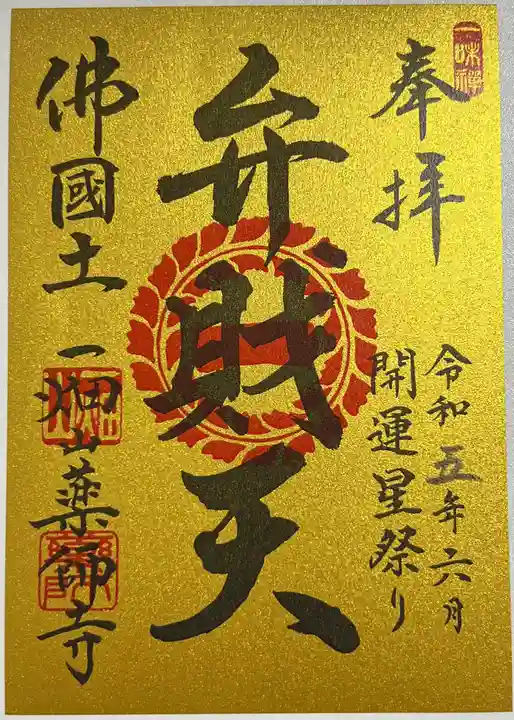 一味禅
奉拝
令和五年六月
開運星祭り
弁財天
佛國土
一畑山薬師寺